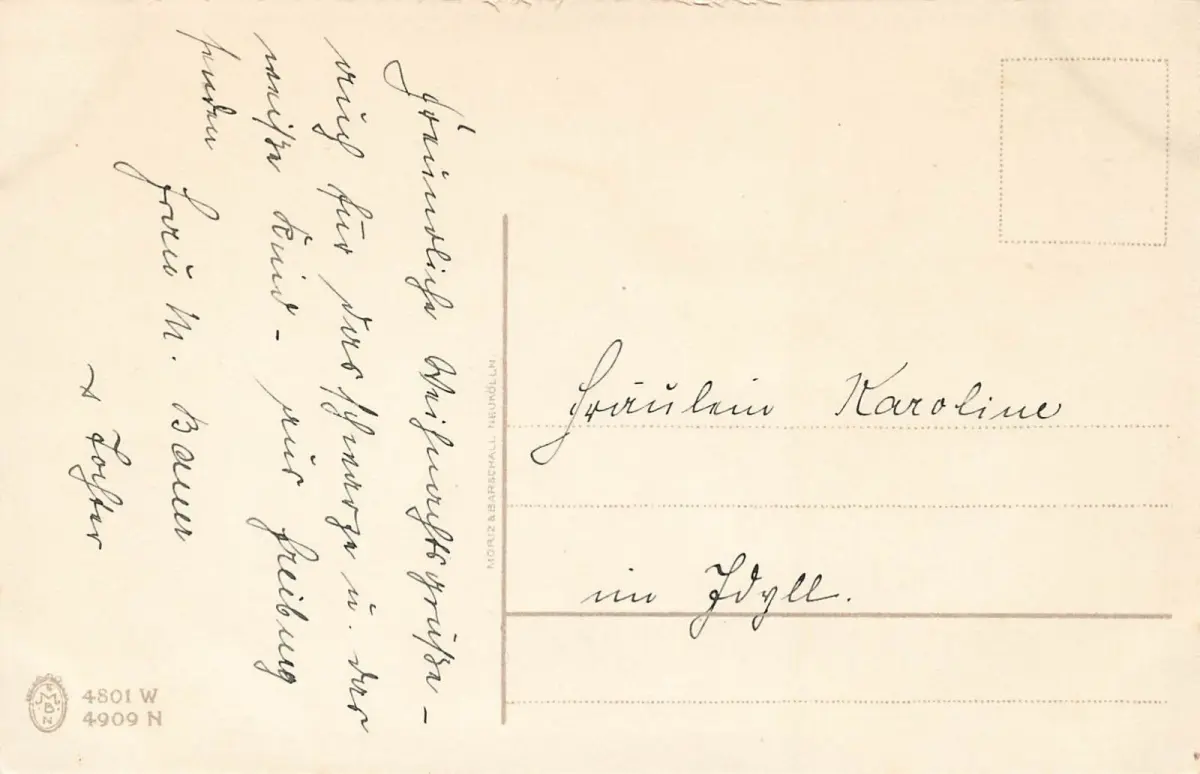 Freundliche Weihnachtsgrüße -
auch für das schwarze u. das
weiße Kind - aus Freiburg
senden
Frau M. Bauer
& Tochter
MORIZ & BARSCHALL NEUKÖLLN
Fräulein Karoline
im Idyll.
4801 W
4909 N